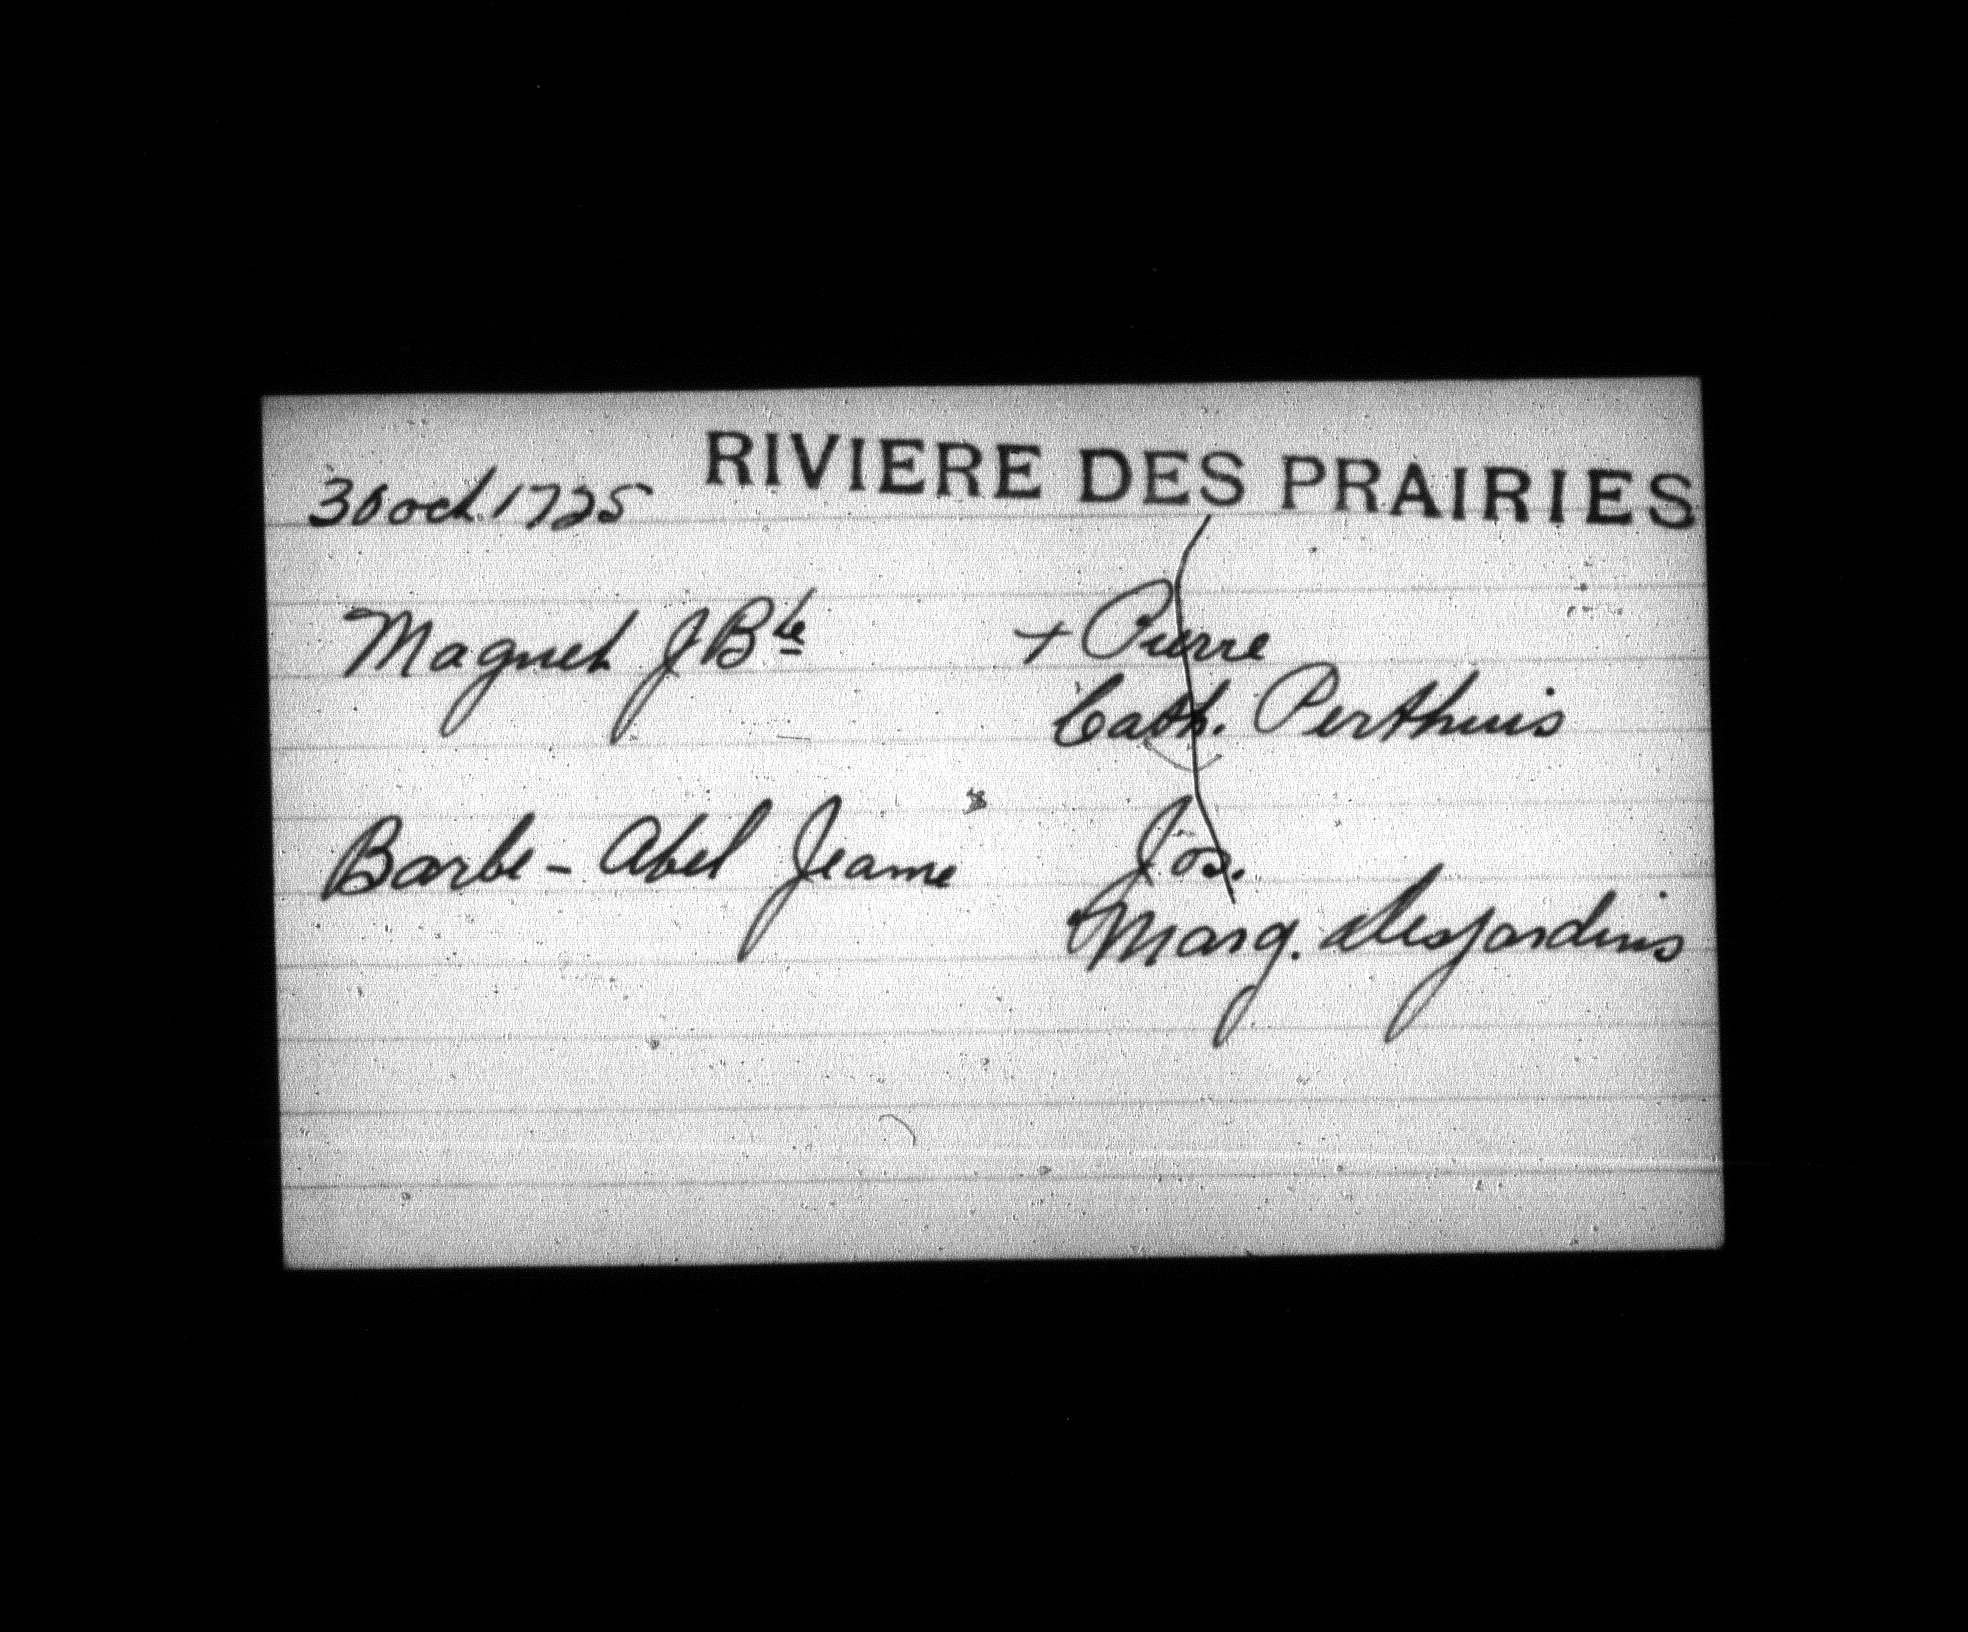 RIVIERE DES PRAIRIES
30 oct. 1725
Magnet J Bte + Pierre
Cath. Perthuis
Barbe - Abel Jeanne Jos.
Marg. desjardins